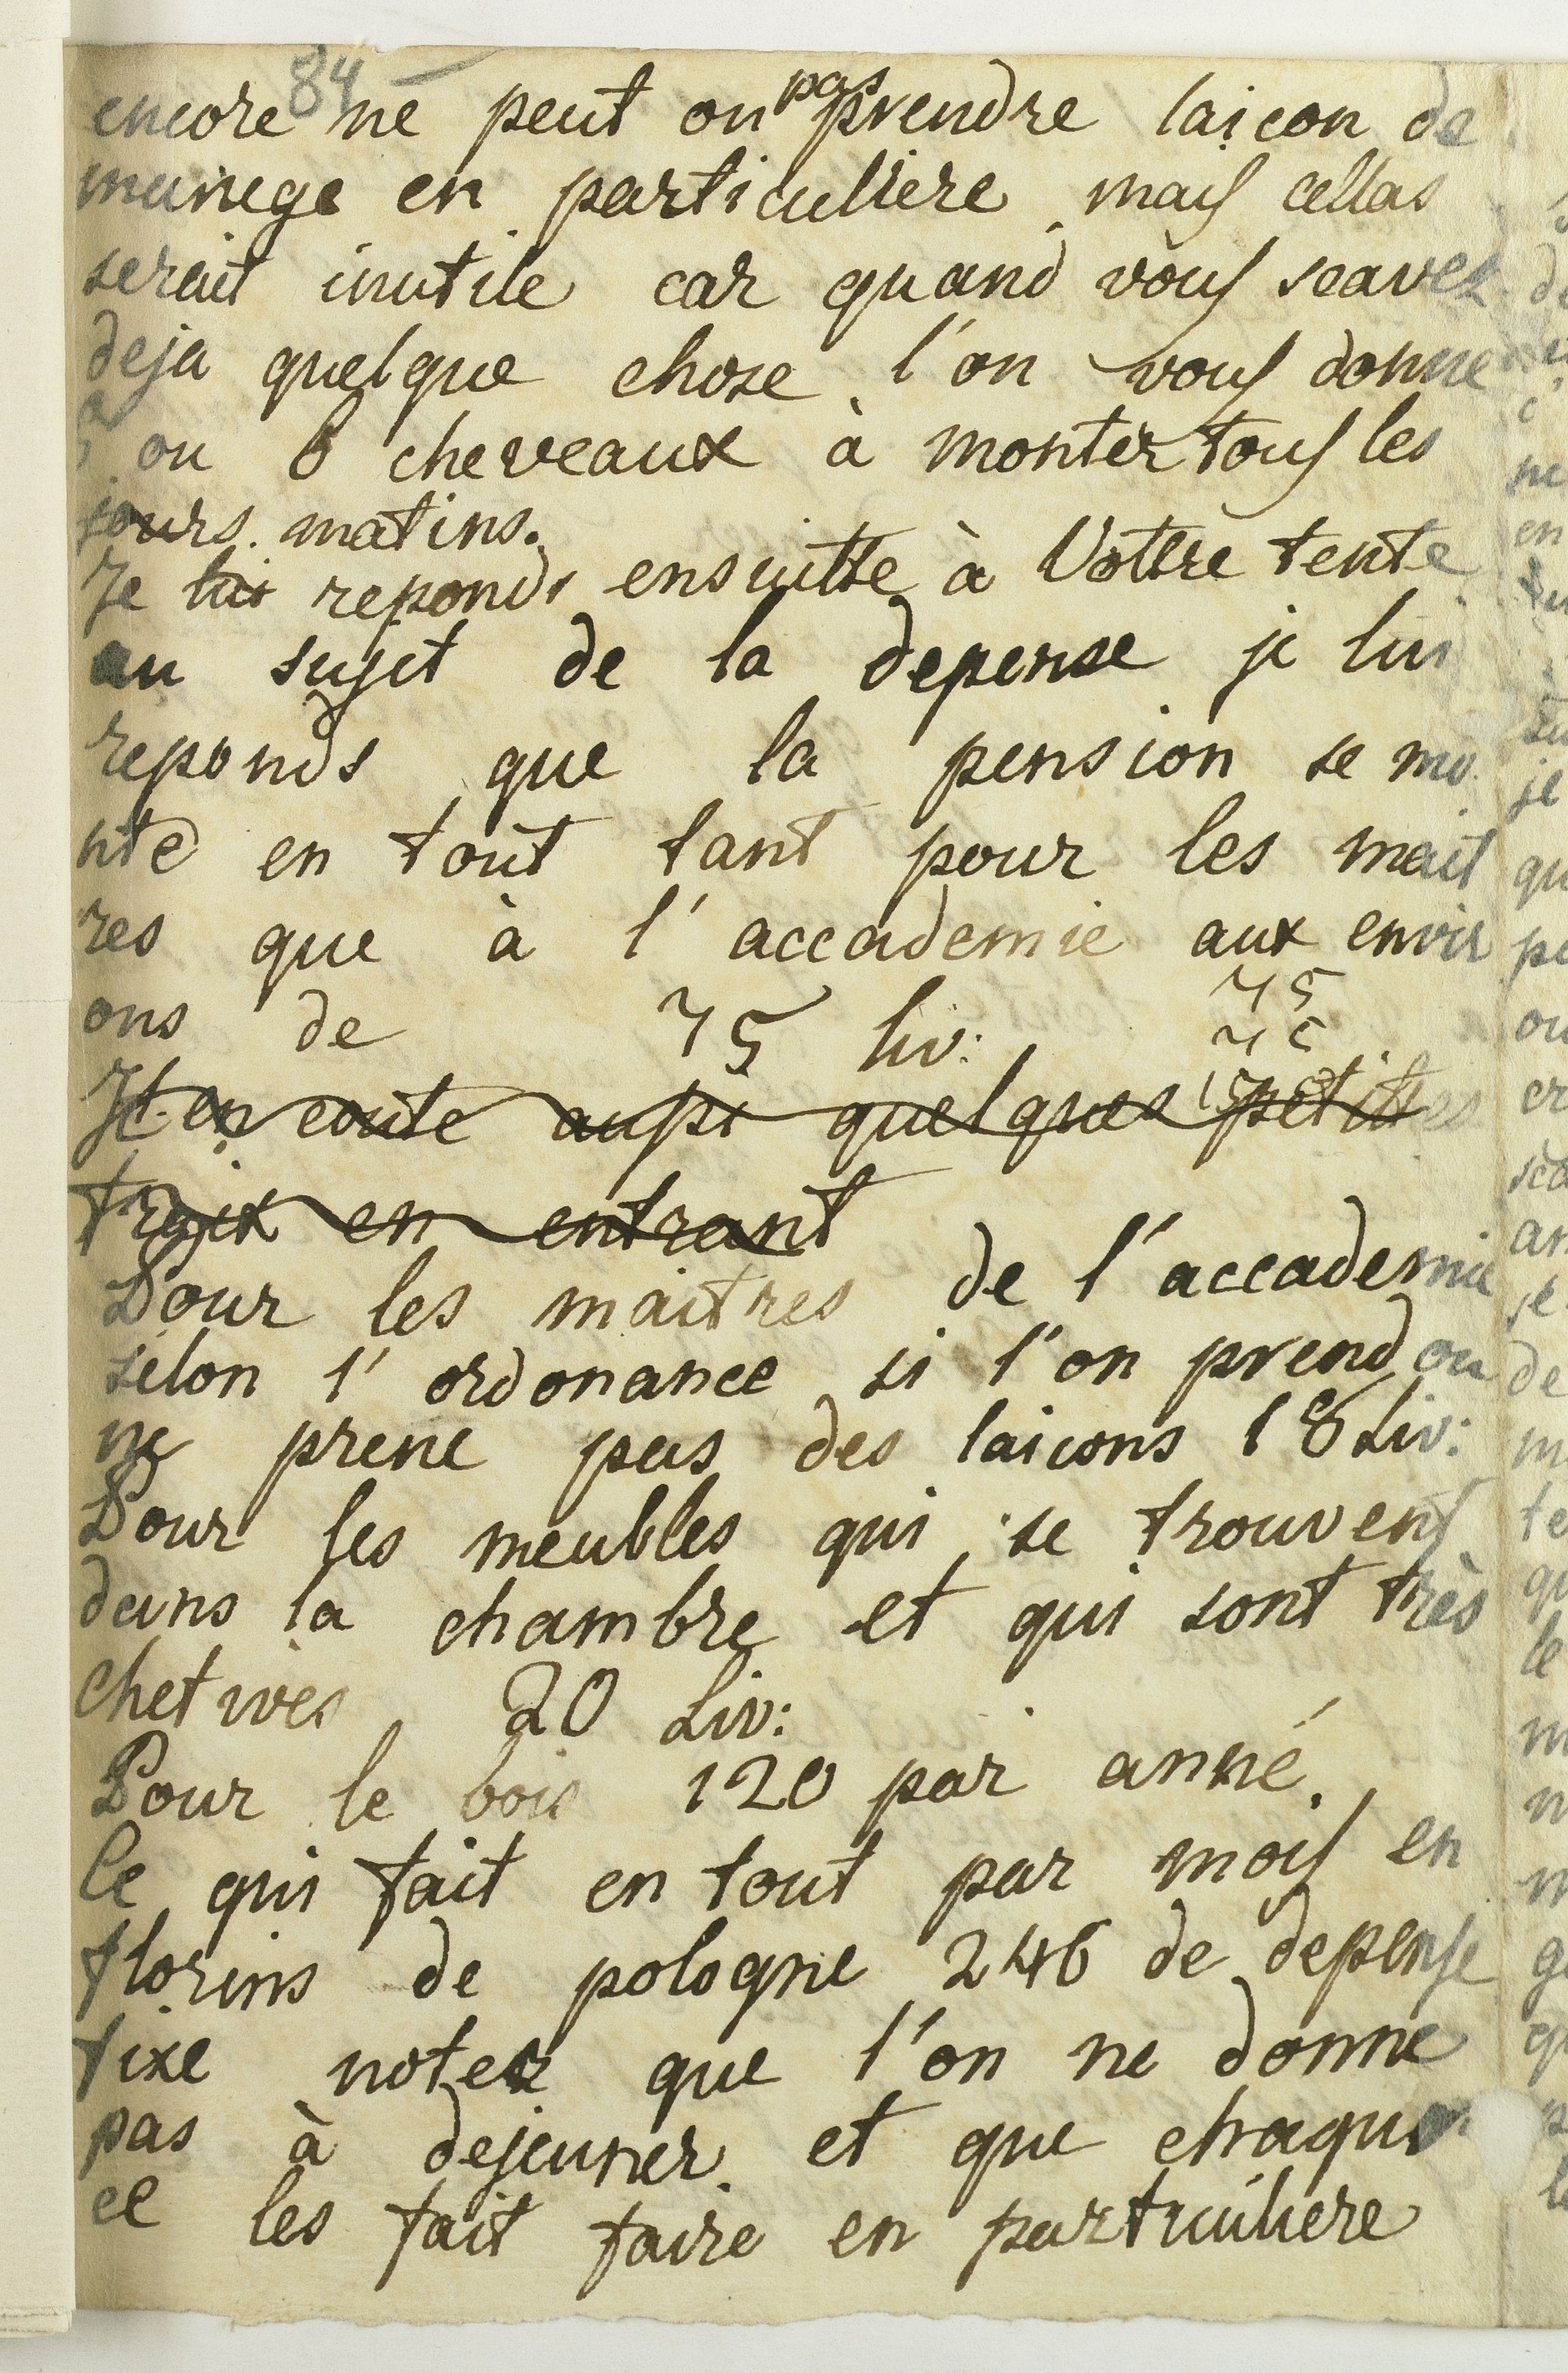 84
encore ne peut on pas prendre laicon de
manege en particuliere mais cellas
serait inutile car quand vous scavez
deja quelque chose l'on vous donne
5 ou 6 cheveaux à monter tous les
jours. matins.
Je lui reponds ensuitte à Vottre tente
au sujet de la depense je lui
reponds que la pension se mo
nte en tout tant pour les mait
res que à l'accademie aux envir
ons de 75 liv: 75
75
150
Il en coute aussi quelques petittes
fraix en entrant
Pour les maitres de l'accademie
selon l'ordonance si l'on prend ou
ne prene pas des laicons 18 Liv:
Pour les meubles qui se trouvent
dans la chambre et qui sont très
chetives 20 Liv:
Pour le bois 120 par anné.
Ce qui fait en tout par mois en
florins de pologne 246 de depense
fixe notez que l'on ne donne
pas à dejeuner et que chaqu
el les fait faire en partuculiere